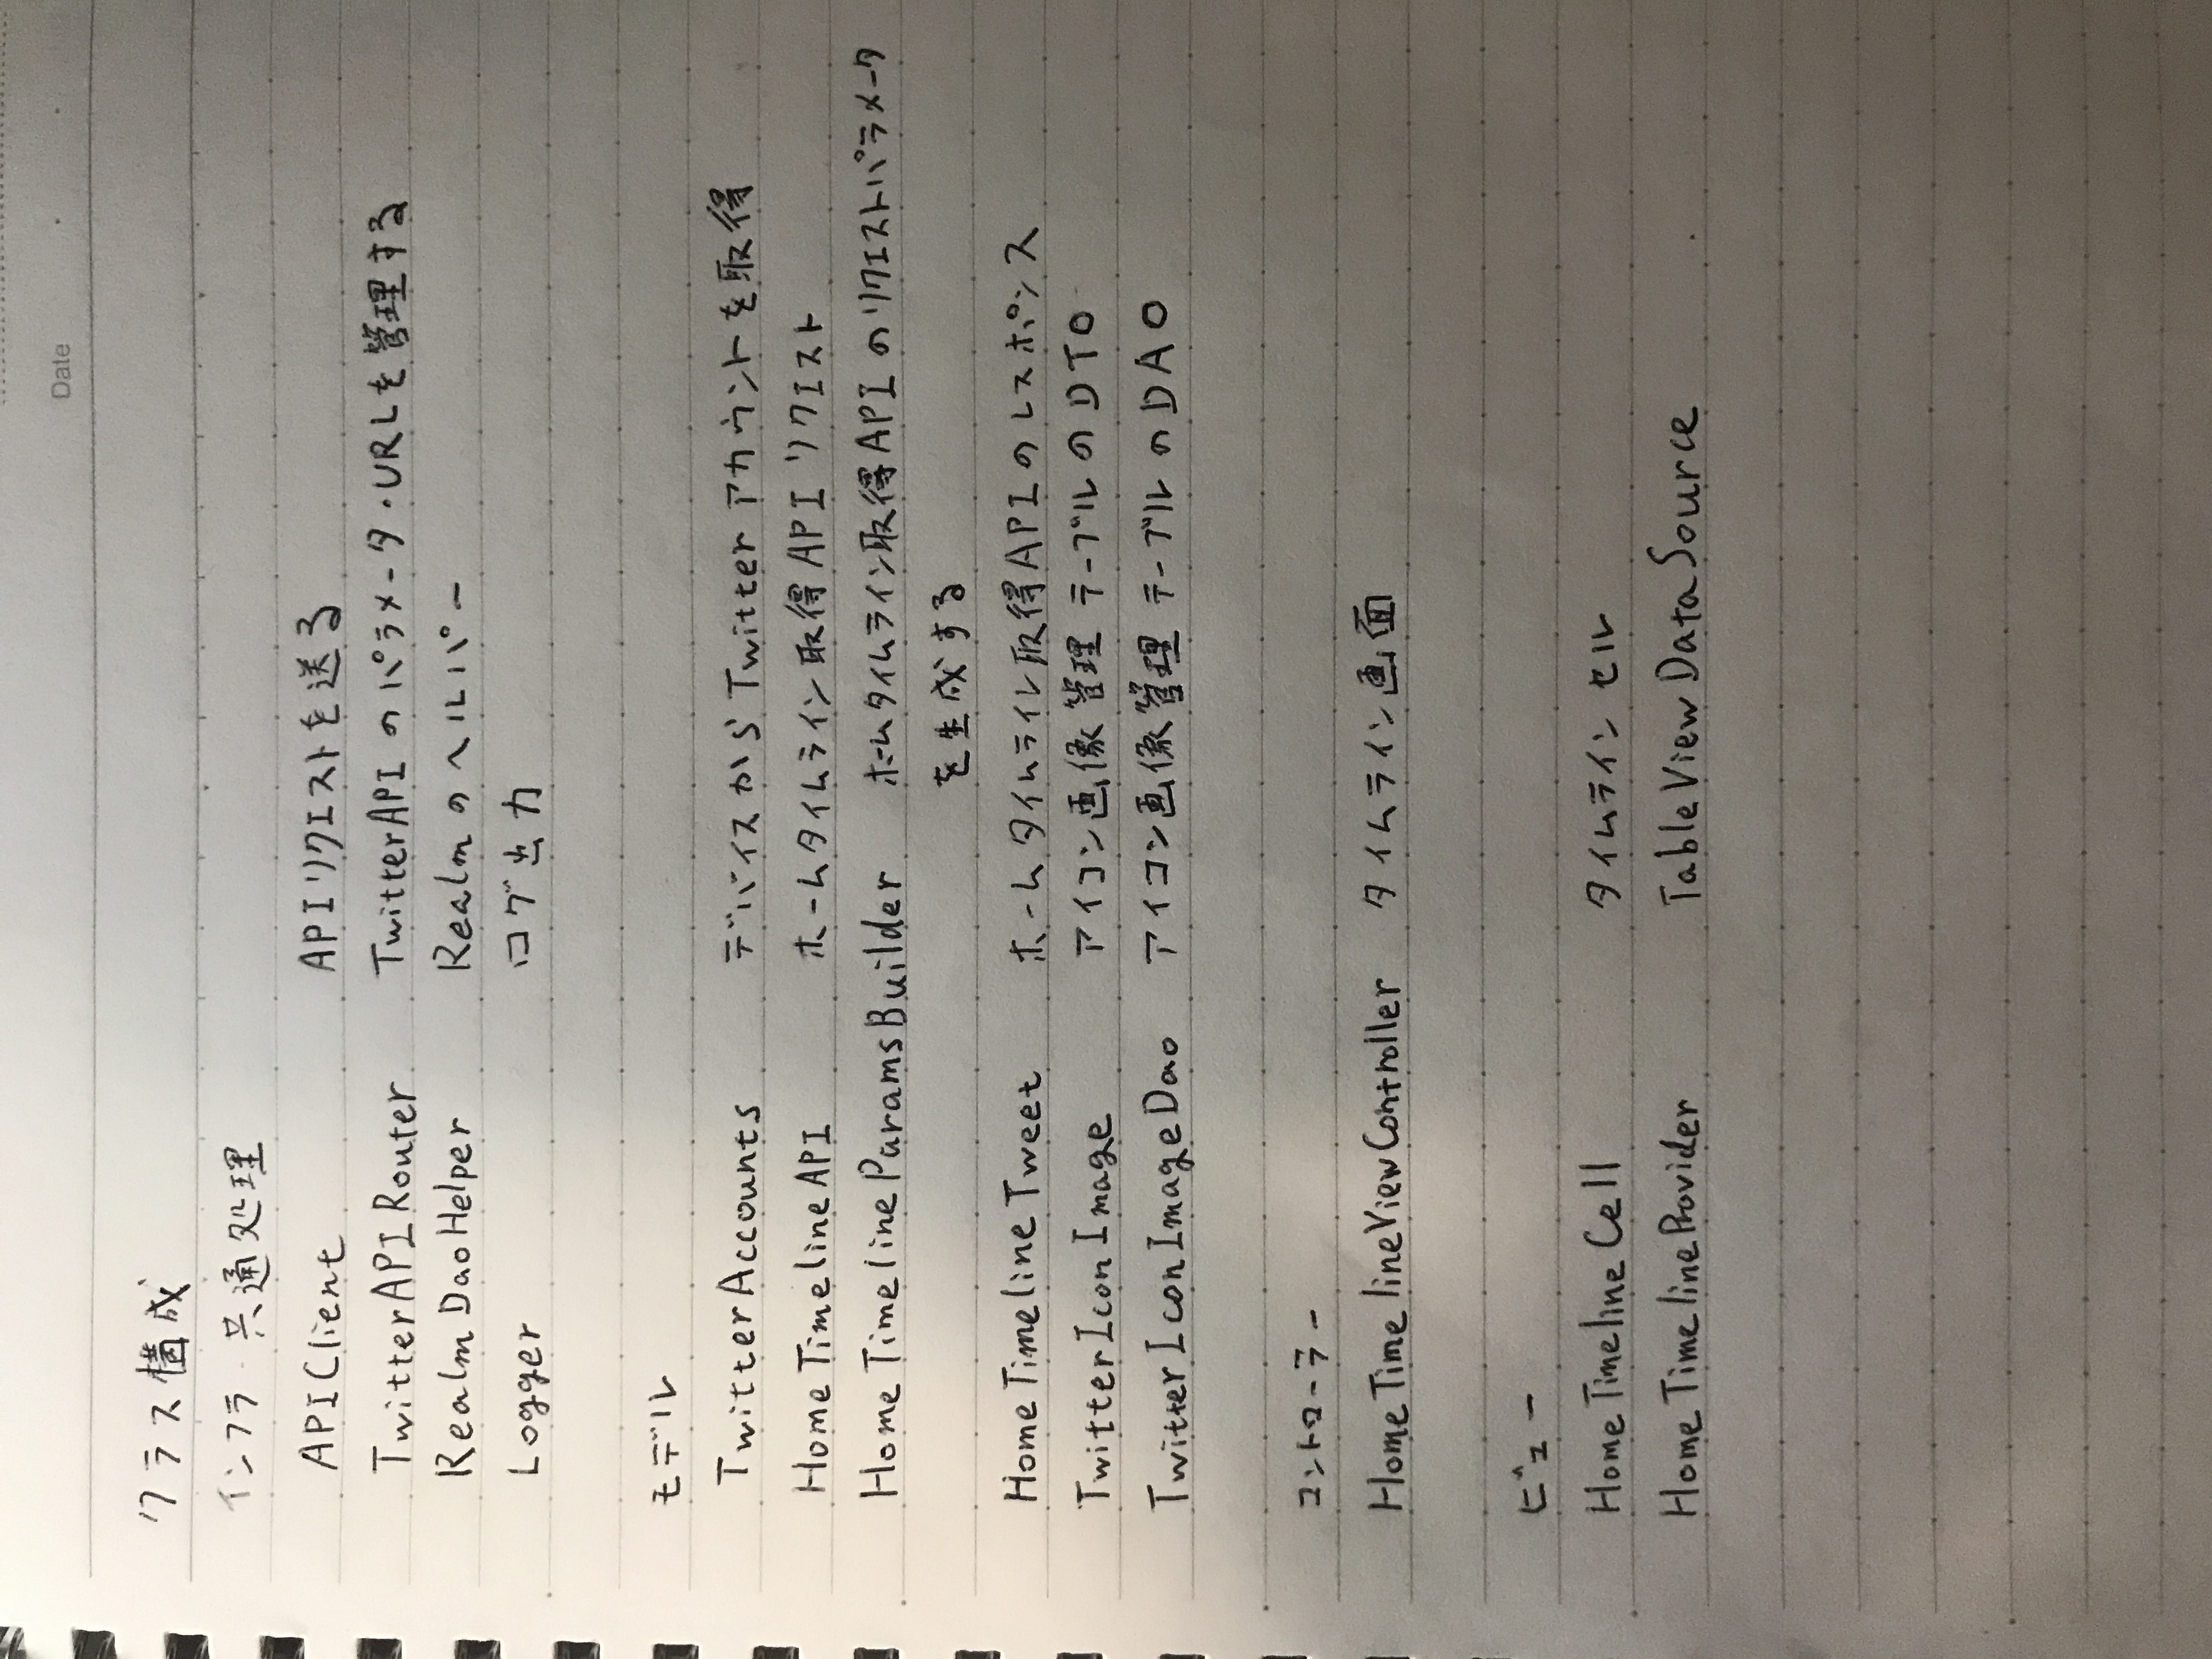 Date
クラス構成
インフラ・共通処理
APIClient APIリクエストを送る
TwitterAPIRouter TwitterAPIのパラメータ・URLを管理する
RealmDaoHelper Realmのヘルパー
Logger ログ出力
モデル
TwitterAccounts デバイスからTwitterアカウントを取得
HomeTimelineAPI ホームタイムライン取得APIリクエスト
HomeTimelineParamsBuilder ホームタイムライン取得APIのリクエストパラメータ
を生成する
HomeTimelineTweet ホームタイムライン取得APIのレスポンス
TwitterIconImage アイコン画像管理テーブルのDTO
TwitterIconImageDao アイコン画像管理テーブルのDAO
コントローラー
HomeTimelineViewController タイムライン画面
ビュー
HomeTimelineCell タイムラインセル
HomeTimelineProvider TableViewDataSource